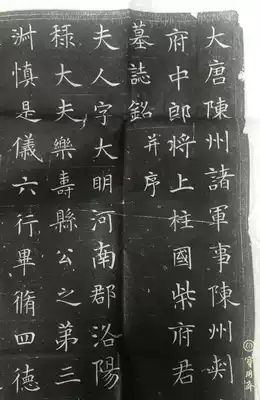 大唐陳州諸軍事陳州刾
府中郎將上柱國柴府君
墓誌銘并序
夫人字大明河南郡洛陽
祿大夫樂壽縣公之第三
淑慎是儀六行畢脩四德